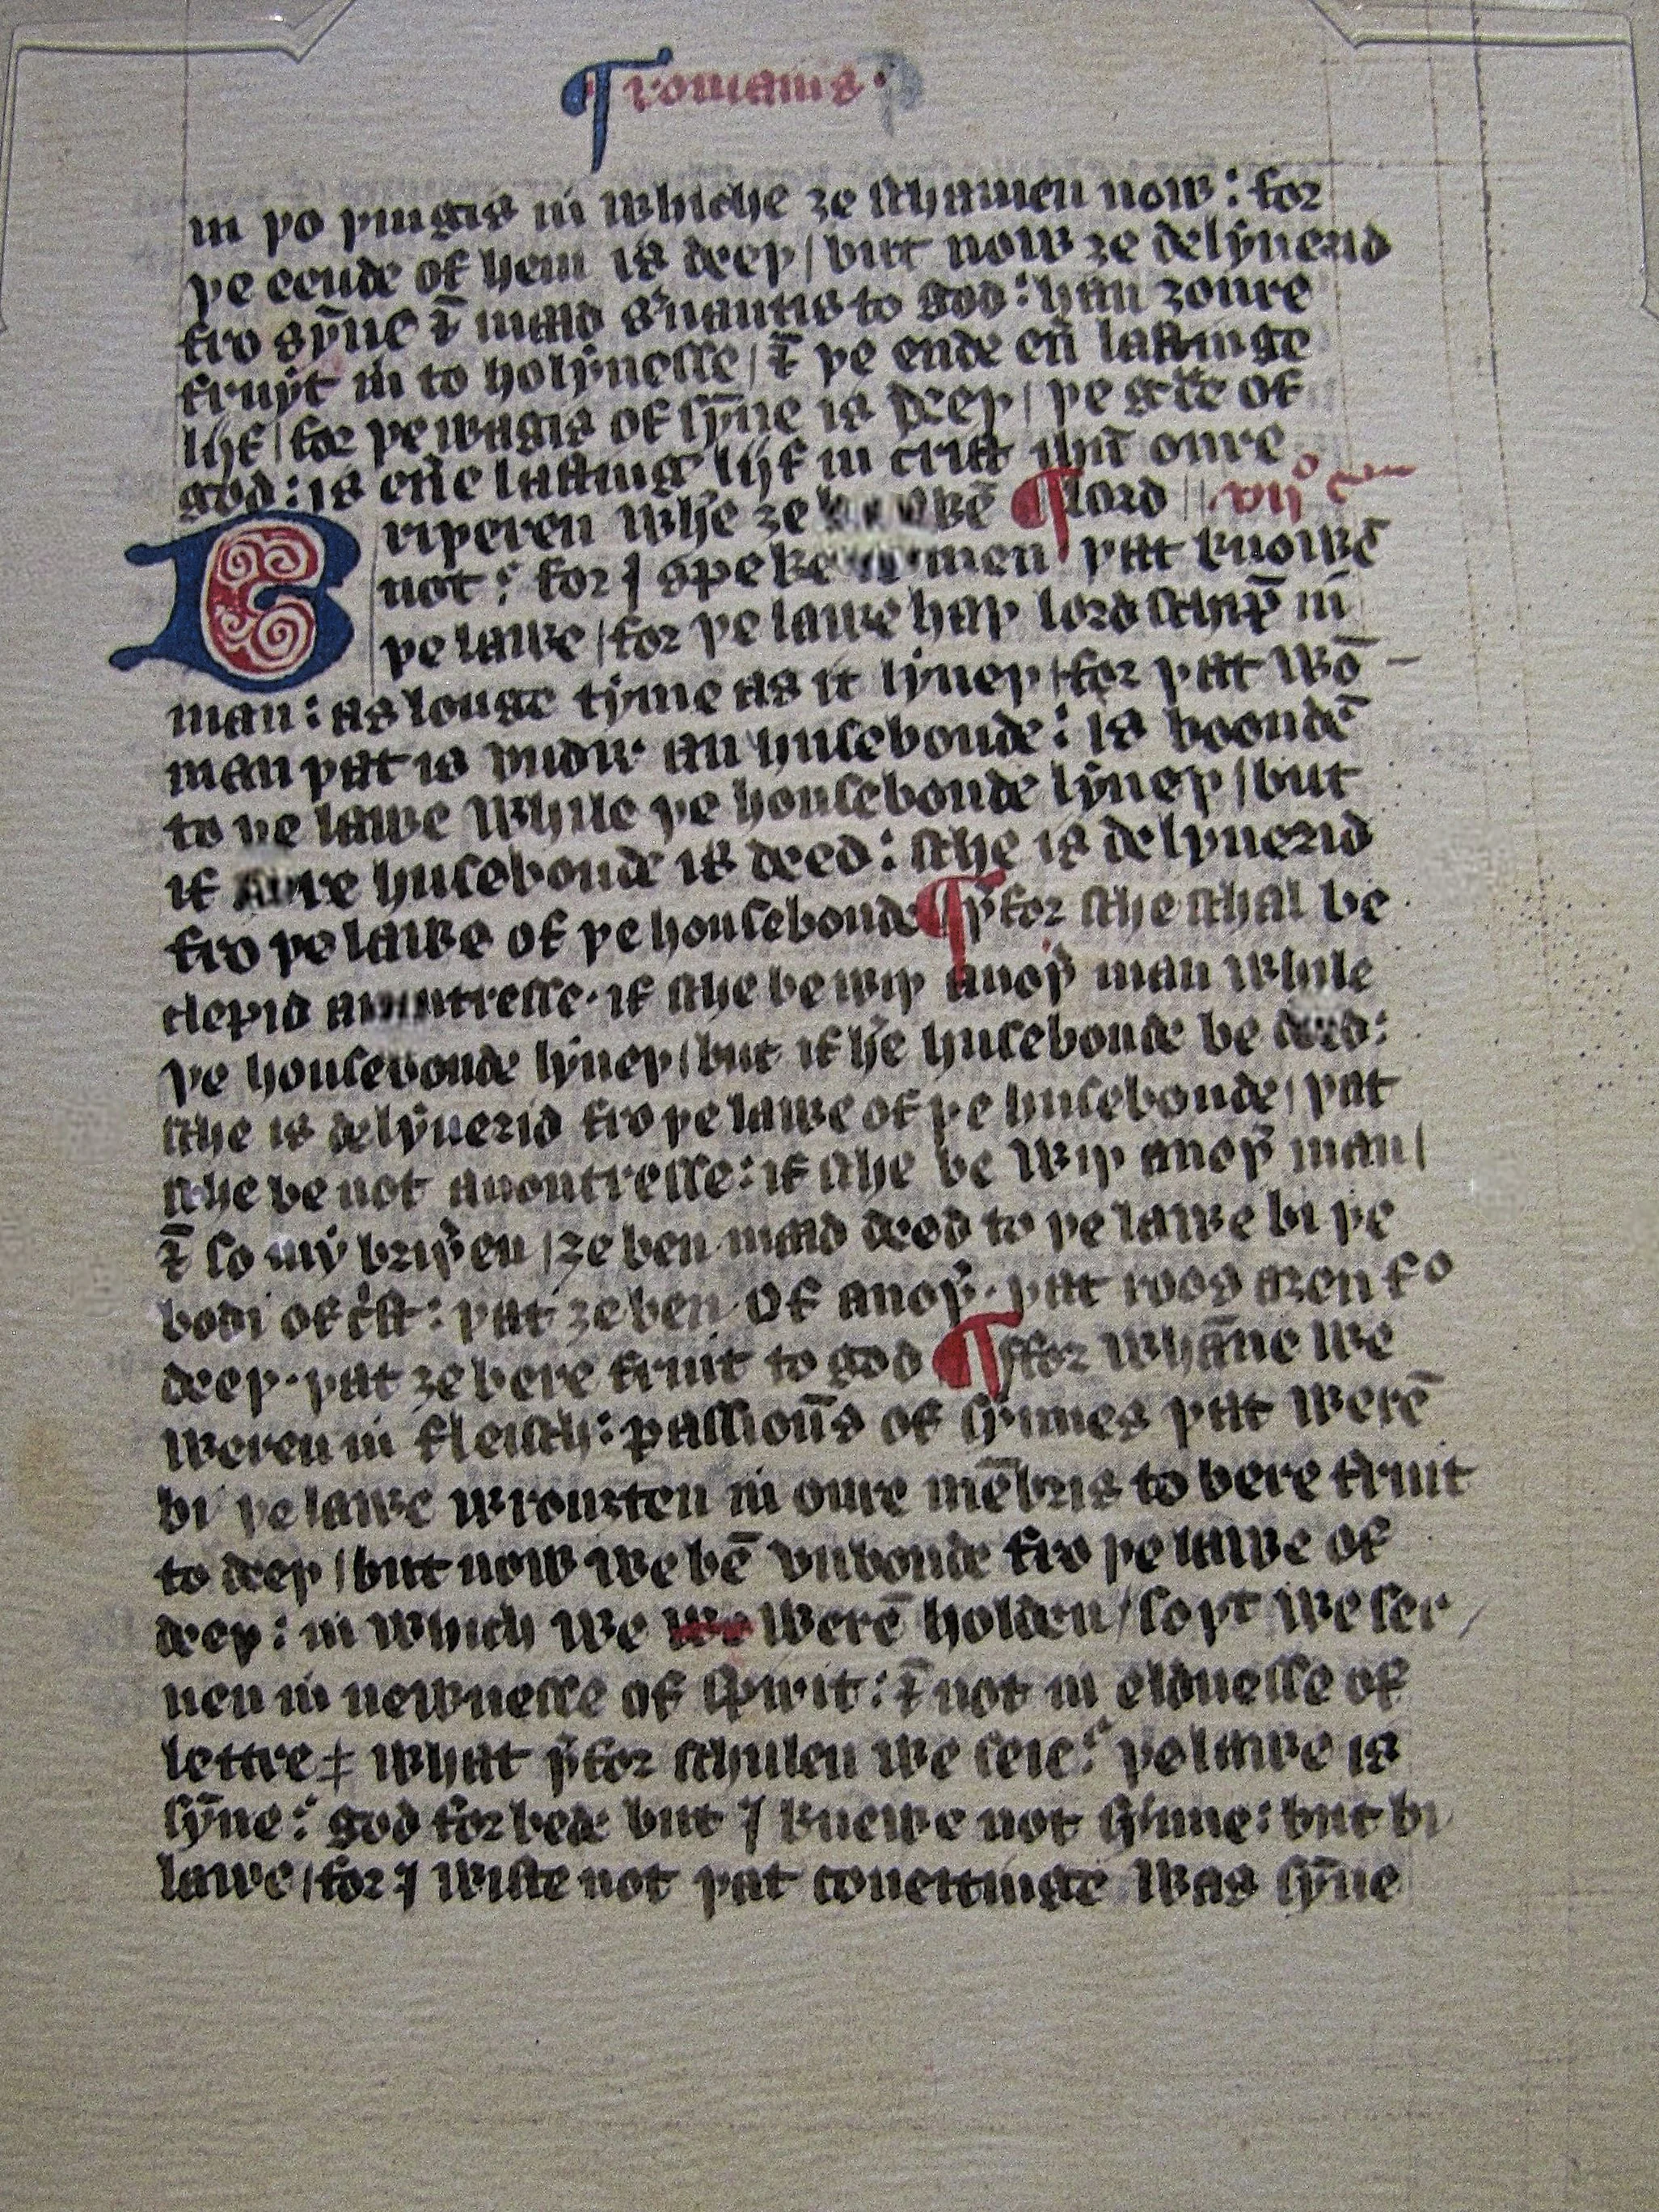 ¶ romains ·
in þo þingis in whiche ȝe schamen now : for
þe eende of hem is deeþ / but now ȝe delyuerid
fro sȳne ⁊ maad sˀuauntis to god : han ȝoure
fruyt in to holynesse / ⁊ þe ende eū lastinge
lijf / for þe wagis of sȳne is deeþ / þe gͬce of
god : is eūe lasting lijf in crist ihū oure
Briþeren wheˀ ȝe ¶ lord // vijº cͫ
not : for I speke men þat knowē
þe lawe / for þe lawe haþ lordschip̄ in
man : as longe tyme as it lyueþ / for þat wō-
man þat is vndir an husebonde : is boondē
to þe lawe while þe housebonde lyueþ / but
if husebonde is deed : sche is delyuerid
fro þe lawe of þe housebonde ¶ þˀfor sche schal be
clepid if sche be wiþ anoþˀ man while
þe housebonde lyueþ / but if heˀ husebonde be deed :
sche is delyuerid fro þe lawe of þe husebonde / þat
sche be not auoutresse : if sche be wiþ anoþˀ man /
⁊ so my briþˀen / ȝe ben maad deed to þe lawe bi þe
bodi of cͥst : þat ȝe ben of anoþˀ · þat roos aȝen fro
deeþ · þat ȝe bere fruit to god ¶ ffor whāne we
weren in fleisch : passioūs of synnes þat werē
bi þe lawe wrouȝten in oure mēbris to bere fruit
to deeþ / but now we bē vnbonde fro þe lawe of
deeþ : in which we we werē holden / so þͭ we ser /
uen in newnesse of spirit : ⁊ not in eldnesse of
lettre ‡ what þˀfor schulen we seie : þe lawe is
sȳne : god forbede but I knewe not synne : but bi
lawe / for I wiste not þat coueitinge was sȳne